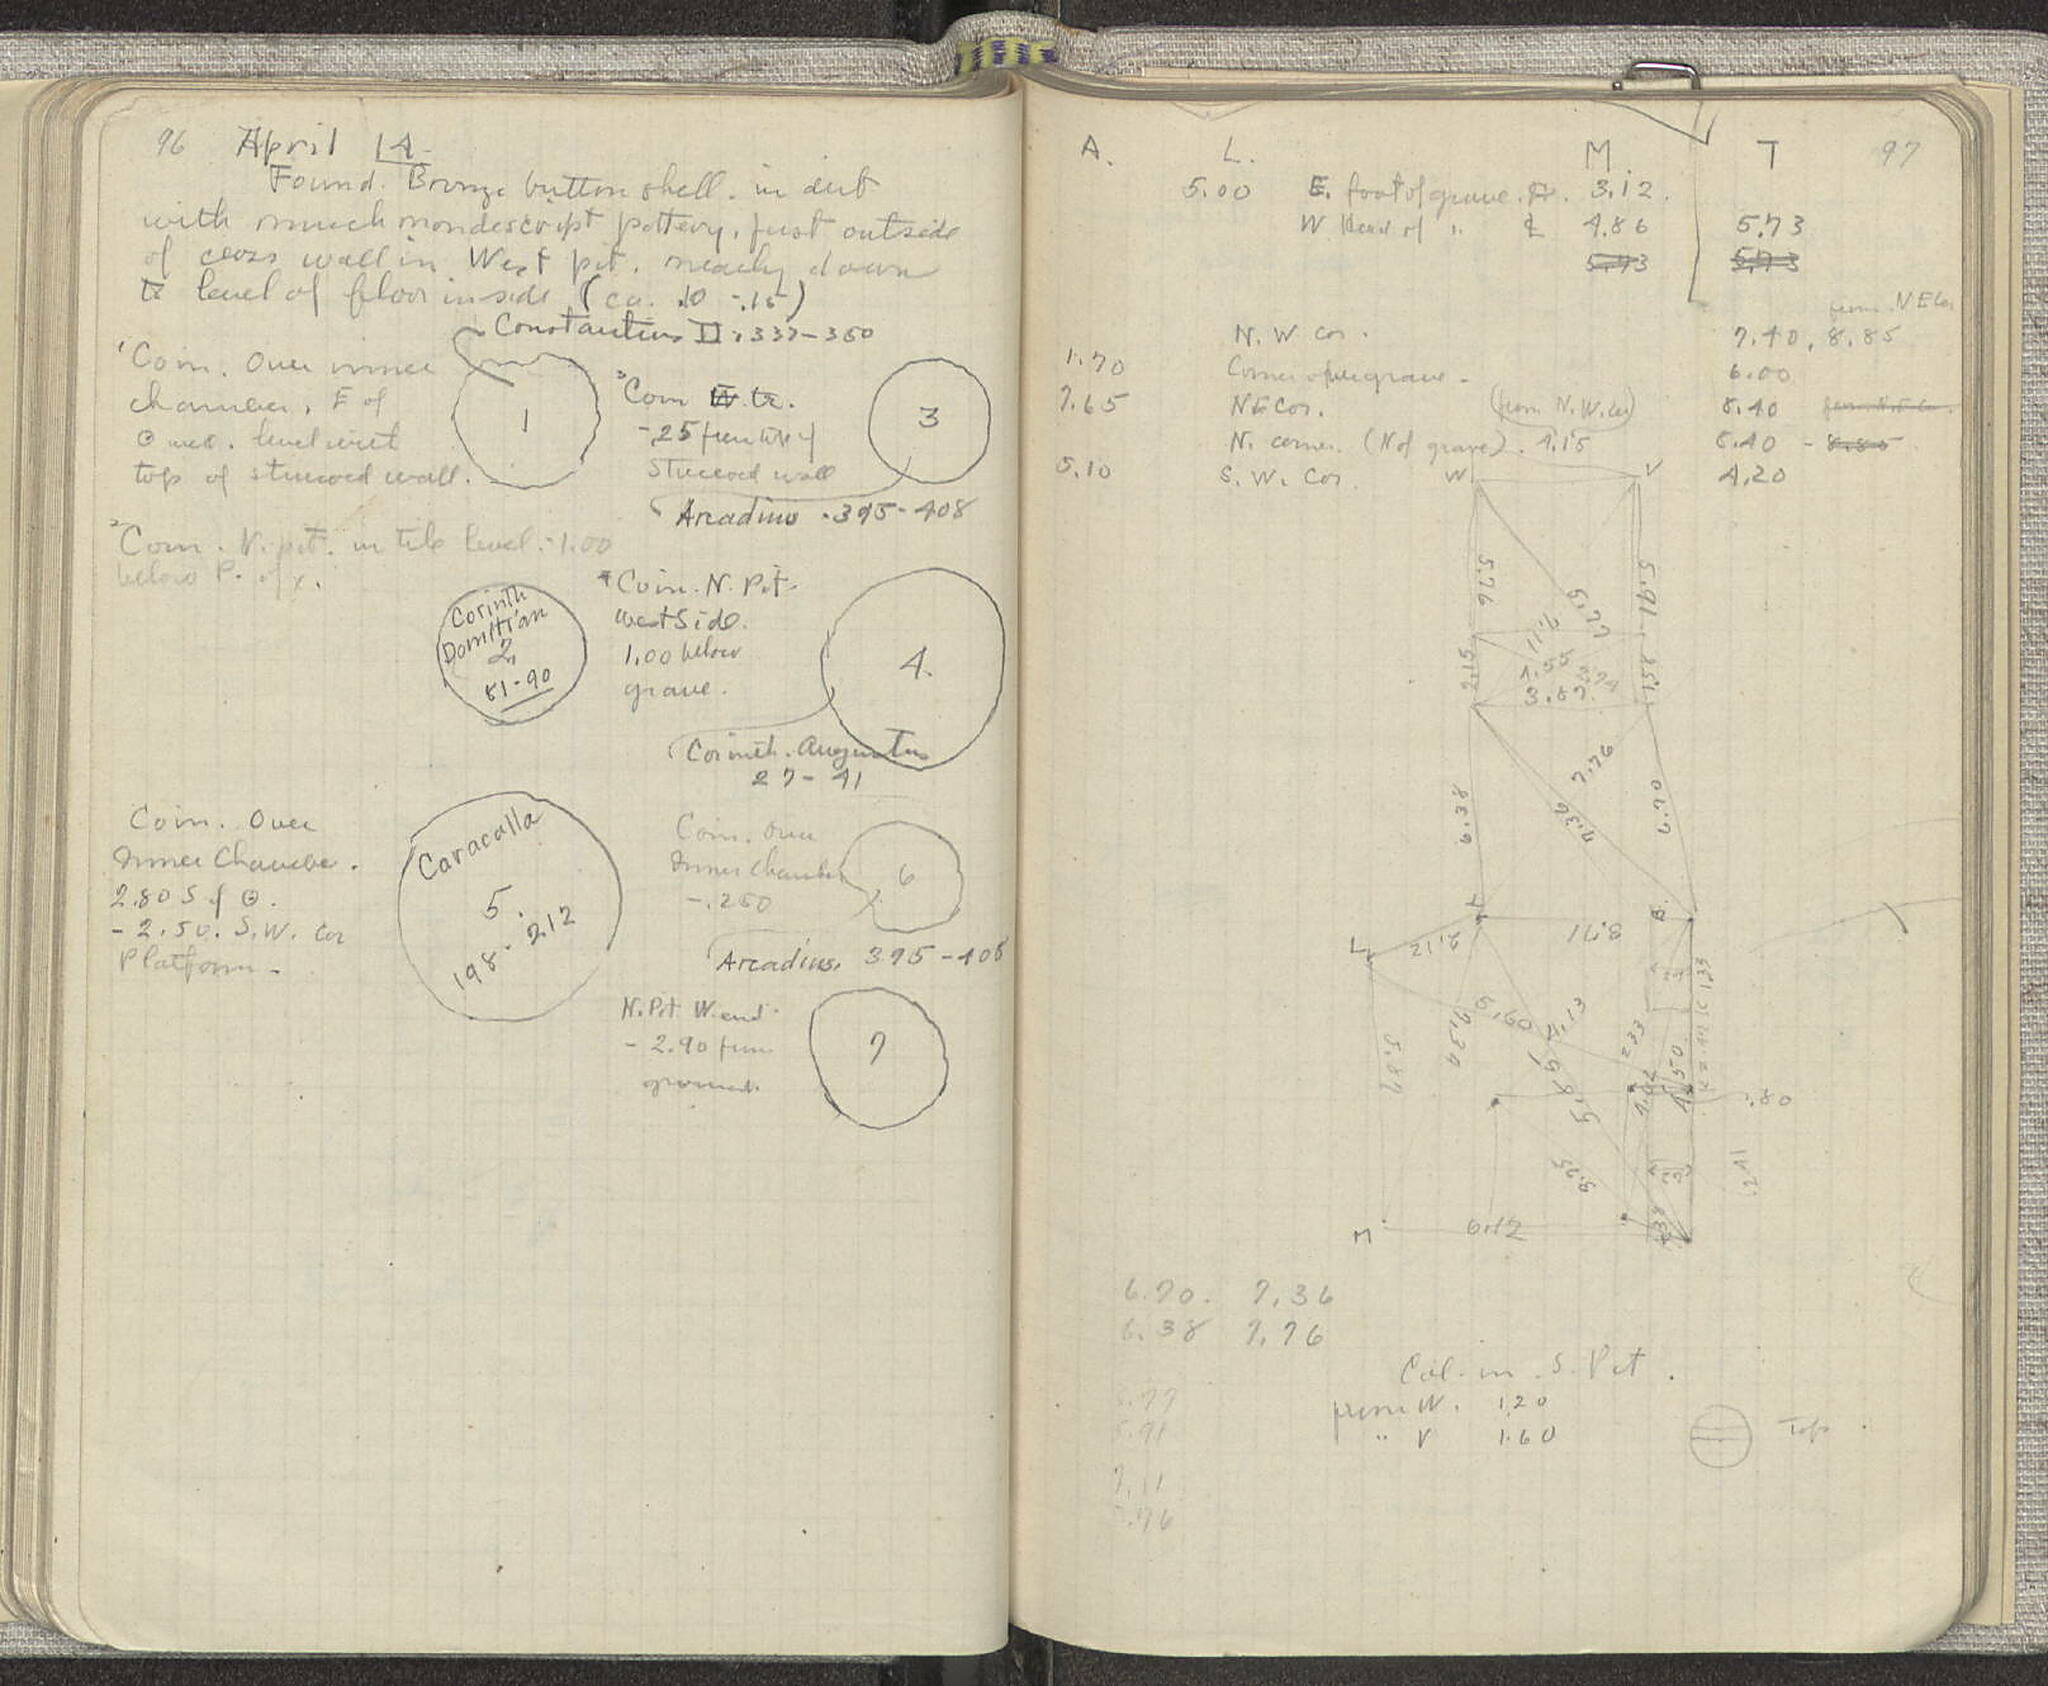 96 April 14
Found. Bronze button shell. in dirt
with much nondescript pottery, just outside
of cross wall in West pit. nearly down
to level of floor inside (ca. .10 - .15)
Constantius II. 337-350
1 Coin. Over inner
chamber, E of
level with
top of stuccoed wall.
1
3 Coin W. tr.
-.25 from top of
Stuccoed wall
3
Arcadius . 395-408
2 Coin. N. pit. in tile level. -1.00
below P. of x.
Corinth
Domitian
2.
81-90
4 Coin. N. Pit.
West Side.
1.00 below
grave.
4.
Corinth. Augustus
27-41
Coin. Over
Inner Chamber.
2.80 S of Θ.
- 2.50. S.W. Cor
Platform.
Caracalla
5.
198-212
Coin. Over
Inner Chamber
-.250
6
Arcadius. 395-408
N. Pit W. end.
- 2.90 from
ground.
7
A. L. M. T 97
5.00 E. foot of grave. 3.12.
W Head of " 4.86 5.73
5.73 5.73
from N E Cor
N. W Cor. 7.40, 8.85
1.70 Corner of grave. 6.00
7.65 NE Cor. (from N.W. Cor) 8.40 from N.E. Cor.
N. corner. (N of grave). 4.15 8.40 - 8.85
5.10 S. W. Cor. 4.20
W V
5.76
5.91
7.11
2.15
1.55
3.74
3.87
1.58
7.76
6.38
7.36
6.70
L
2.12
8.71
B.
5.60
4.13
7.34
5.87
2.33
1.50
.80
9.25
M 6.12
6.70. 7.36
6.38 7.76
5.91
7.11
7.76
Col. in S. Pit.
from W. 1.20
" V 1.60
Top.